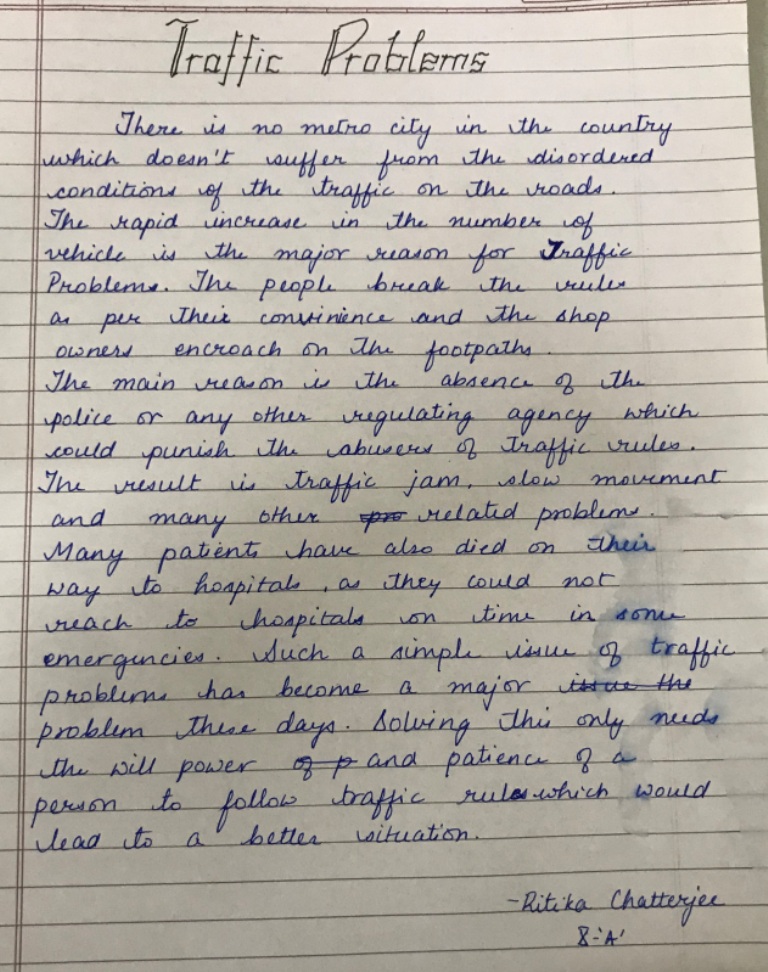 Traffic Problems
There is no metro city in the country
which doesn't suffer from the disordered
conditions of the traffic on the roads.
The rapid increase in the number of
vehicle is the major reason for Traffic
Problems. The people break the rules
as per their convinience and the shop
owners encroach on the footpaths.
The main reason is the absence of the
police or any other regulating agency which
could punish the abusers of traffic rules.
The result is traffic jam, slow movement
and many other pro related problems.
Many patients have also died on their
way to hospitals, as they could not
reach to hospitals on time in some
emergencies. Such a simple issue of traffic
problems has become a major issue the
problem these days. Solving this only needs
the will power of p and patience of a
person to follow traffic rules which would
lead to a better situation.
-Ritika Chatterjee
8-'A'